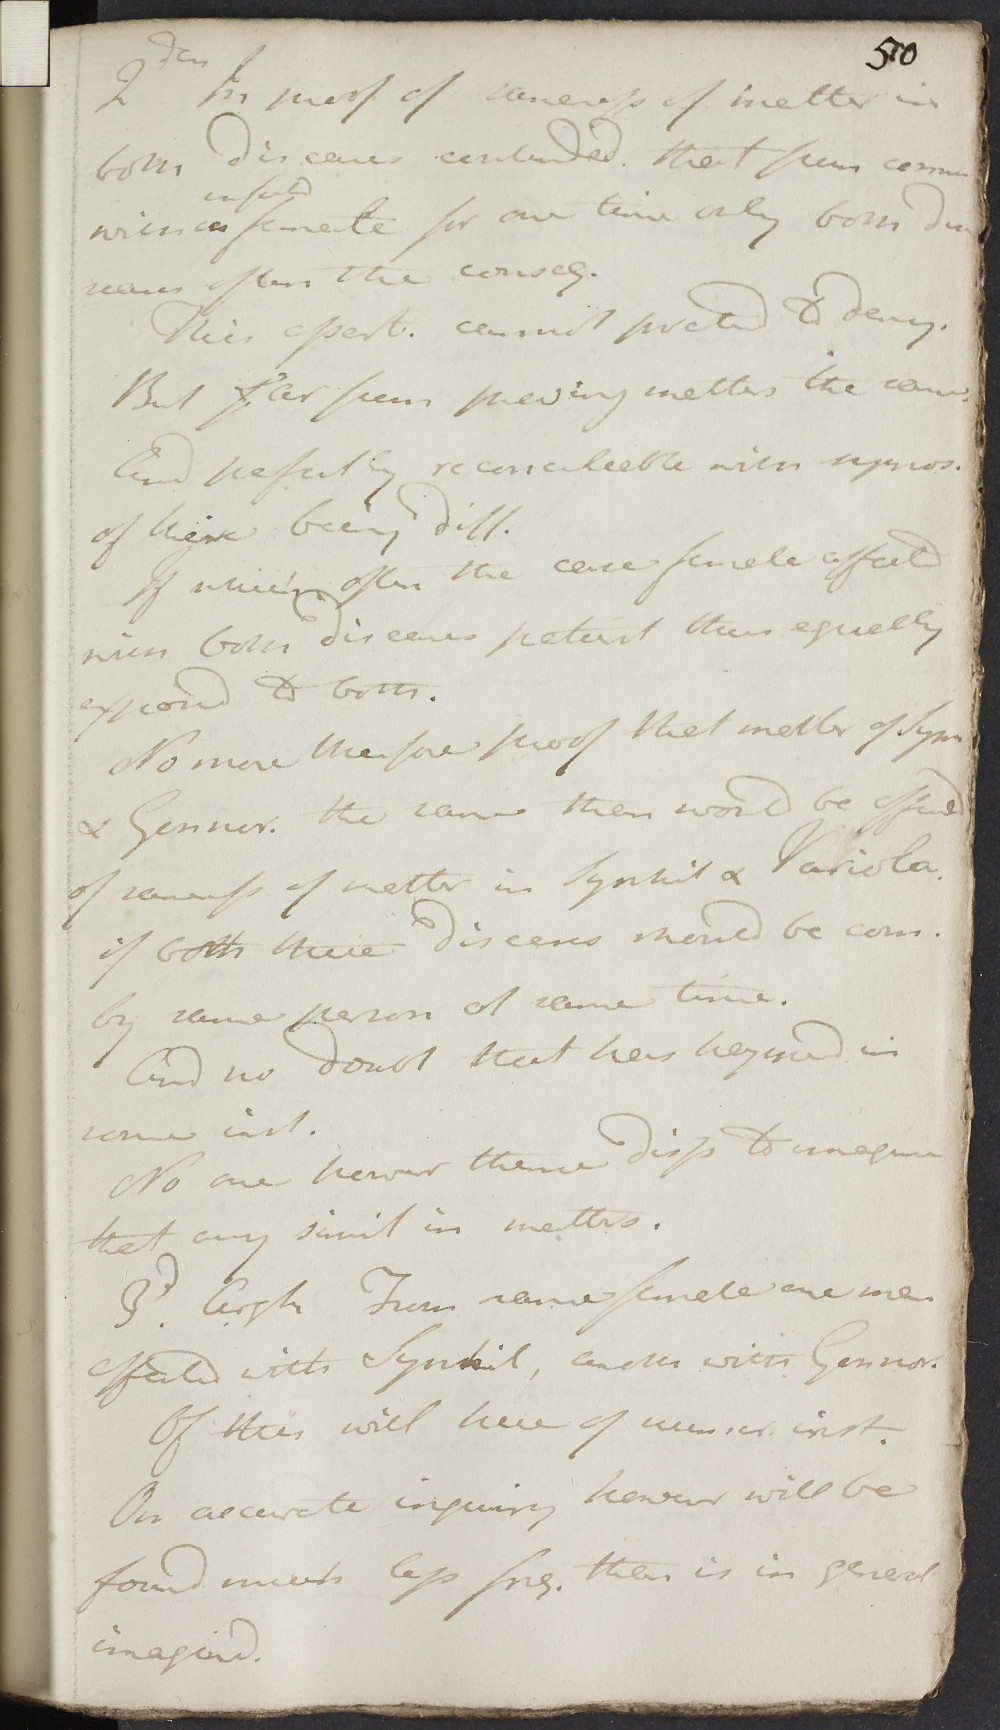 570
2dly In proof of sameness of matter in
both diseases contended. that from comm
infectd
with a female for one time only both dis
eases often the conseq.
This assert. cannot pretend to deny.
But far from proving matters the same.
And perfectly reconcileable with suppos.
of their being diff.
If which often the case female affectd
with both diseases patient thus equally
exposd to both.
No more therefore proof that matter of Syph
& Gonnor. the same than would be afford
of sameness of matter in Syphil & Variola.
if both these diseases should be com.
by same person at same time.
And no doubt that has happend in
some inst.
No one however thence disp to imagine
that any simil in matters.
3d. Argt From same female one man
affected with Syphil, another with Gonnor.
Of this will hear of numer. inst.
On accurate inquiry however will be
found much less freq. than is in general
imagind.